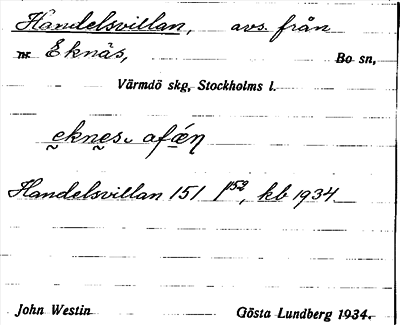 Handelsvillan, avs. från
Eknäs, Bo sn,
Värmdö skg, Stockholms l.
eknes. afǽn
Handelsvillan 151 1/52, kb 1934
John Westin Gösta Lundberg 1934.